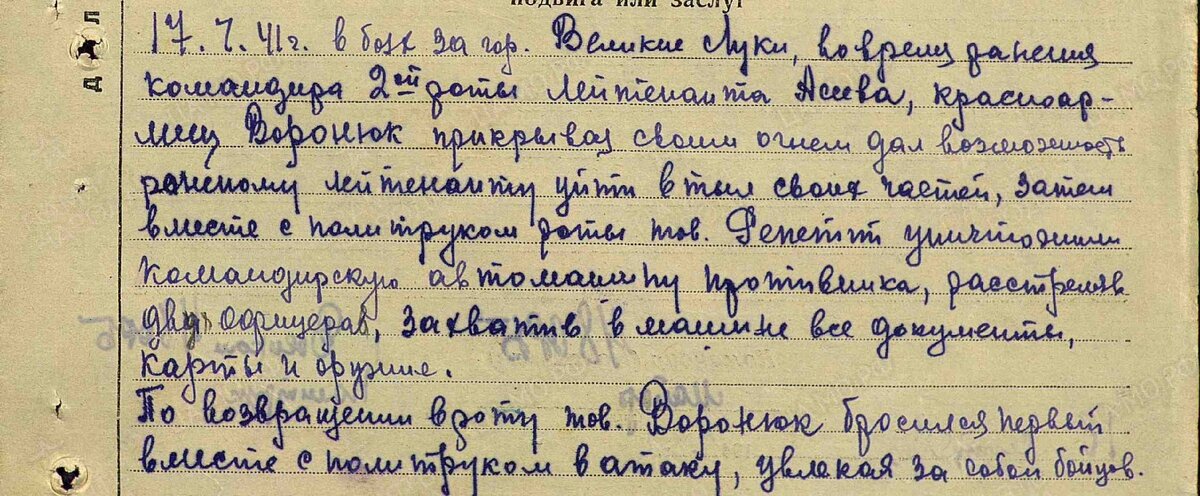 подвига или заслуг
17.7.41г. в боях за гор. Великие Луки, во время ранения
командира 2ой роты лейтенанта Асева, красноар-
меец Воронюк прикрывая своим огнем дал возможность
раненому лейтенанту уйти в тыл своих частей, затем
вместе с политруком роты тов. Репетт уничтожили
командирскую автомашину противника, расстреляв
двух офицеров, захватив в машине все документы,
карты и оружие.
По возвращении в роту тов. Воронюк бросился первый
вместе с политруком в атаку, увлекая за собой бойцов.